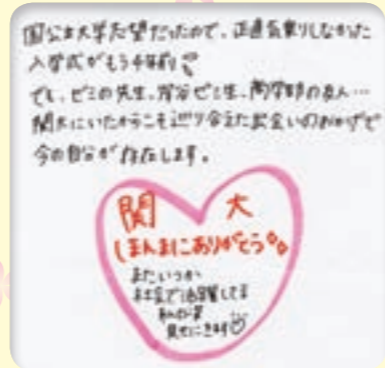 国公立大学志望だったので、正直気乗りしなかった
入学式がもう4年前!
でも、ゼミの先生、岸谷ゼミ生、商学部の友人…
関大にいたからこそ巡り会えた出会いのおかげで
今の自分が存在します。
関 大
ほんまにありがとう
またいつか
社会で活躍してる
私の姿
見せにきます